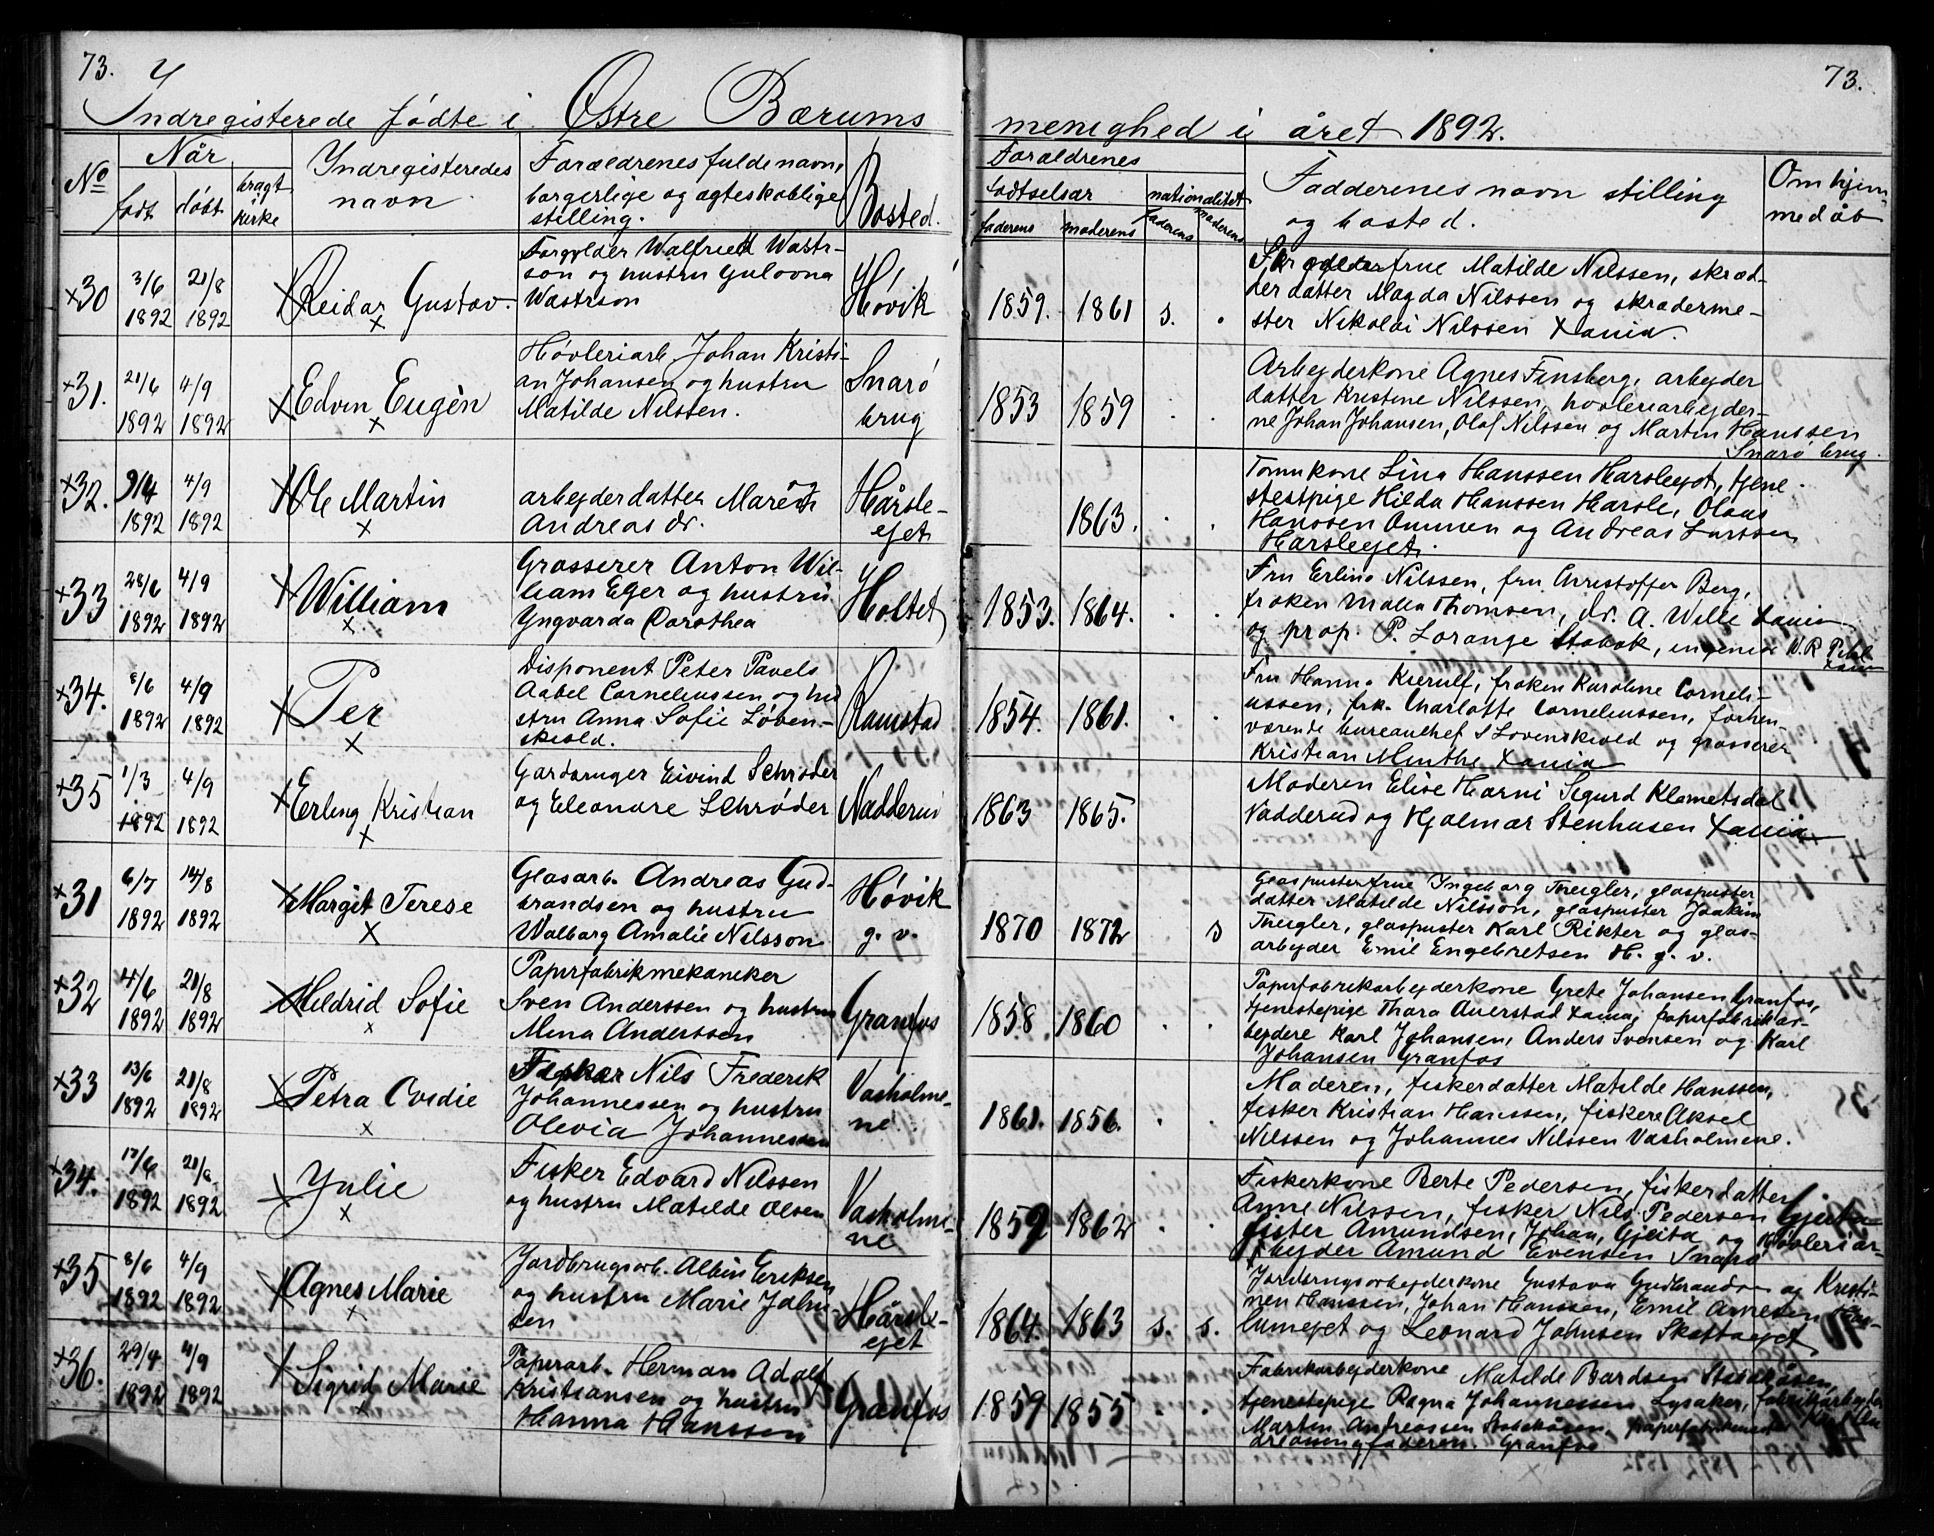 73.
73.
Indregisterede fødte i Østre Bærums menighed i året 1892.
No Når Indregisteredes Forældrenes fulde navn, Bosted. Forældrenes Fadderenes navn stilling Om hjem-
født døbt bragt i kirke navn borgerlige og ægteskablige fødtselsår nationalitet og bosted. medøb
stilling. faderens moderens faderens moderens
×30 3/6 21/8 Reidar Gustav Forgylder Walfried Wastr- Høvik 1859. 1861 s.
1892 1892 son og hustru Gulovna
Wastrson
frue Matilde Nilssen, skræd-
derdatter Magda Nilssen og skræderme-
ster Nikolai Nilssen Xania.
×31. 21/6 4/9 Edvin Eugèn Høvleriarb. Johan Kristi- Snarø 1853 1859
1892 1892 an Johansen og hustru brug
Matilde Nilssen.
Arbejderkone Agnes Finsberg, arbejder
datter Kristine Nilssen, høvleriarbejder-
ne Johan Johansen, Olaf Nilssen og Martin Hanssen
Snarø brug.
×32. 4/9 Ole Martin arbejderdatter Andreasdr. Hårsle- 1863.
1892 1892 ejet
Lina Hanssen Harslegjet, tjene-
stepige Hilda Hanssen Harsle, Olaus
Hanssen og Andreas Larssen
×33 28/6 4/9 William Grosserer Anton Wil- Holtet 1853. 1864.
1892 1892 liam Eger og hustru
Yngvarda Dorothea
Fru Erlina Nilssen, fru Christoffer Berg,
frøken Molla Thomsen, dr. A. Wille Xania
og prop. P. Lorange Stabæk, ingeniør W. R.
Xania
×34. 8/6 4/9 Per Disponent Peter Pavels Ramstad 1854. 1861.
1892 1892 Aabel Corneliussen og hu-
stru Anna Sofie Løven-
skiold.
Fru Hanna Kierulf, frøken Karoline Corneli-
ussen, frk. Charlotte Corneliussen, forhen-
værende bureauchef S Lovenskiold og grosserer
Kristian Minthe Xania
×35 1/3 4/9 Erling Kristian Gardbruger Eivind Schrøder Nadderud 1863 1865.
1892 1892 og Eleonore Schrøder
Moderen Elise Harni Sigurd Klometsdal
Nadderud og Hjalmar Stenhusen Xania
×31 6/7 14/8 Margit Terese Glasarb. Andreas Gud- Høvik 1870 1872 s
1892 1892 brandsen og hustru g. v.
Walborg Amalie Nilsson
Glaspusterfrue Ingeborg Treigler, glaspuster
datter Matilde Nilsson, glaspuster Joakim
Treigler, glaspuster Karl Rikter og glas-
arbejder Emil Engebretsen H. g. v.
×32 4/6 21/8 Hildrid Sofie Papirfabrikmekaniker Granfos 1858. 1860
1892 1892 Sven Anderssen og hustru
Mina Anderssen
Papirfabrikarbejderkone Grete Johansen Granfos,
tjenestepige Thara Auerstad Xania, papirfabrikar-
bejdere Karl Johansen, Anders Svensen og Karl
Johansen Granfos
×33 13/6 21/8 Petra Ovidie Fisker Nils Frederik Vasholme- 1861. 1856.
1892 1892 Johannessen og hustru ne.
Olevia Johannessen
Moderen, fiskerdatter Matilde Hanssen,
fisker Kristian Hanssen, fiskere Aksel
Nilssen og Johannes Nilssen Vasholmene.
×34. 17/6 21/8 Julie Fisker Edvard Nilssen Vasholme- 1859 1862
1892 1892. og hustru Matilde Olsen ne
Fiskerkone Berte Pedersen, fiskerdatter
Anne Nilssen, fisker Nils Pedersen Gjeita
fisker Amundsen, Johan, Gjeita og Høvleriar-
bejder Amund Evensen Snarø
×35 8/6 4/9 Agnes Marie Jordbrugsarb. Albin Eriksen Hårsle- 1864. 1863 s. s.
1892 1892 og hustru Marie John- ejet
sen
Jordbrugsarbejderkone Gustava Gudbrands og Kristi-
nen Hanssen, Johan Hanssen, Emil Arnesen Has-
lumejet og Leonard Johnsen Skottaejet
×36. 29/4 4/9 Sigrid Marie Papirarb. Herman Adolf Granfos 1859 1855
1892 1892 Kristiansen og hustru
Hanna Hanssen
Fabrikarbejderkone Matilde Bardsen
tjenestepige Ragna Johannessen Lysaker, fabrikarbejder
Martin Andreassen
og faderen. Granfos